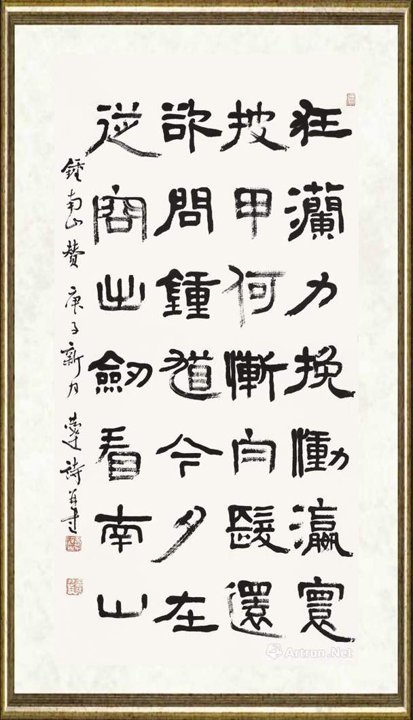 狂瀾力挽慟瀛寰
披甲何慚白髮還
欲問鍾馗今夕在
從容出劒看南山
鍾南山贊 庚子新月 詩并書
Artron.Net